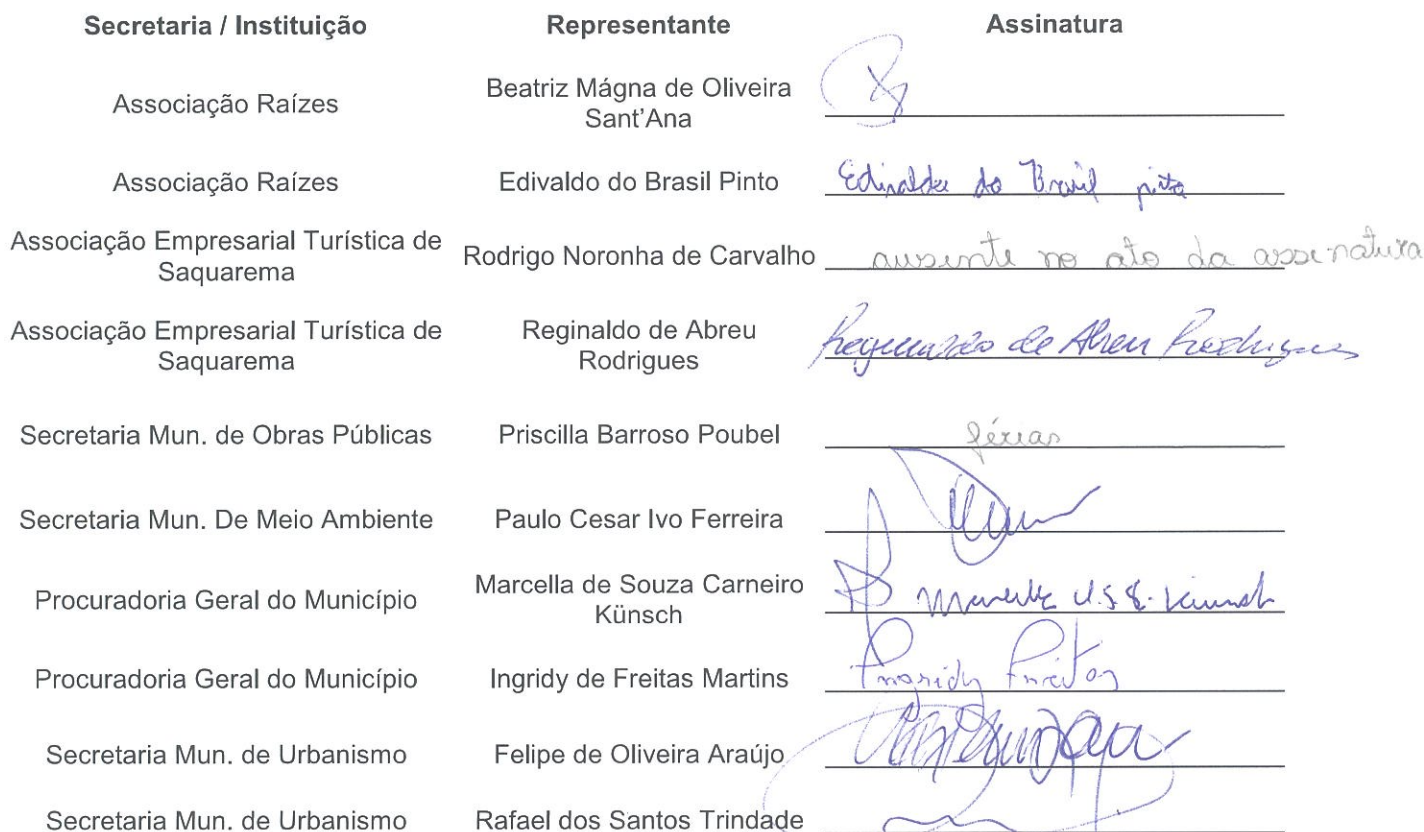 Secretaria / Instituição Representante Assinatura
Associação Raízes Beatriz Mágna de Oliveira
Sant'Ana
Associação Raízes Edivaldo do Brasil Pinto Edivaldo do Brasil pinto
Associação Empresarial Turística de
Saquarema
Rodrigo Noronha de Carvalho ausente no ato da assinatura
Associação Empresarial Turística de
Saquarema
Reginaldo de Abreu
Rodrigues
Reginaldo de Abreu Rodrigues
Secretaria Mun. de Obras Públicas Priscilla Barroso Poubel férias
Secretaria Mun. De Meio Ambiente Paulo Cesar Ivo Ferreira
Procuradoria Geral do Município Marcella de Souza Carneiro
Künsch
Procuradoria Geral do Município Ingridy de Freitas Martins Ingridy Freitas
Secretaria Mun. de Urbanismo Felipe de Oliveira Araújo
Secretaria Mun. de Urbanismo Rafael dos Santos Trindade